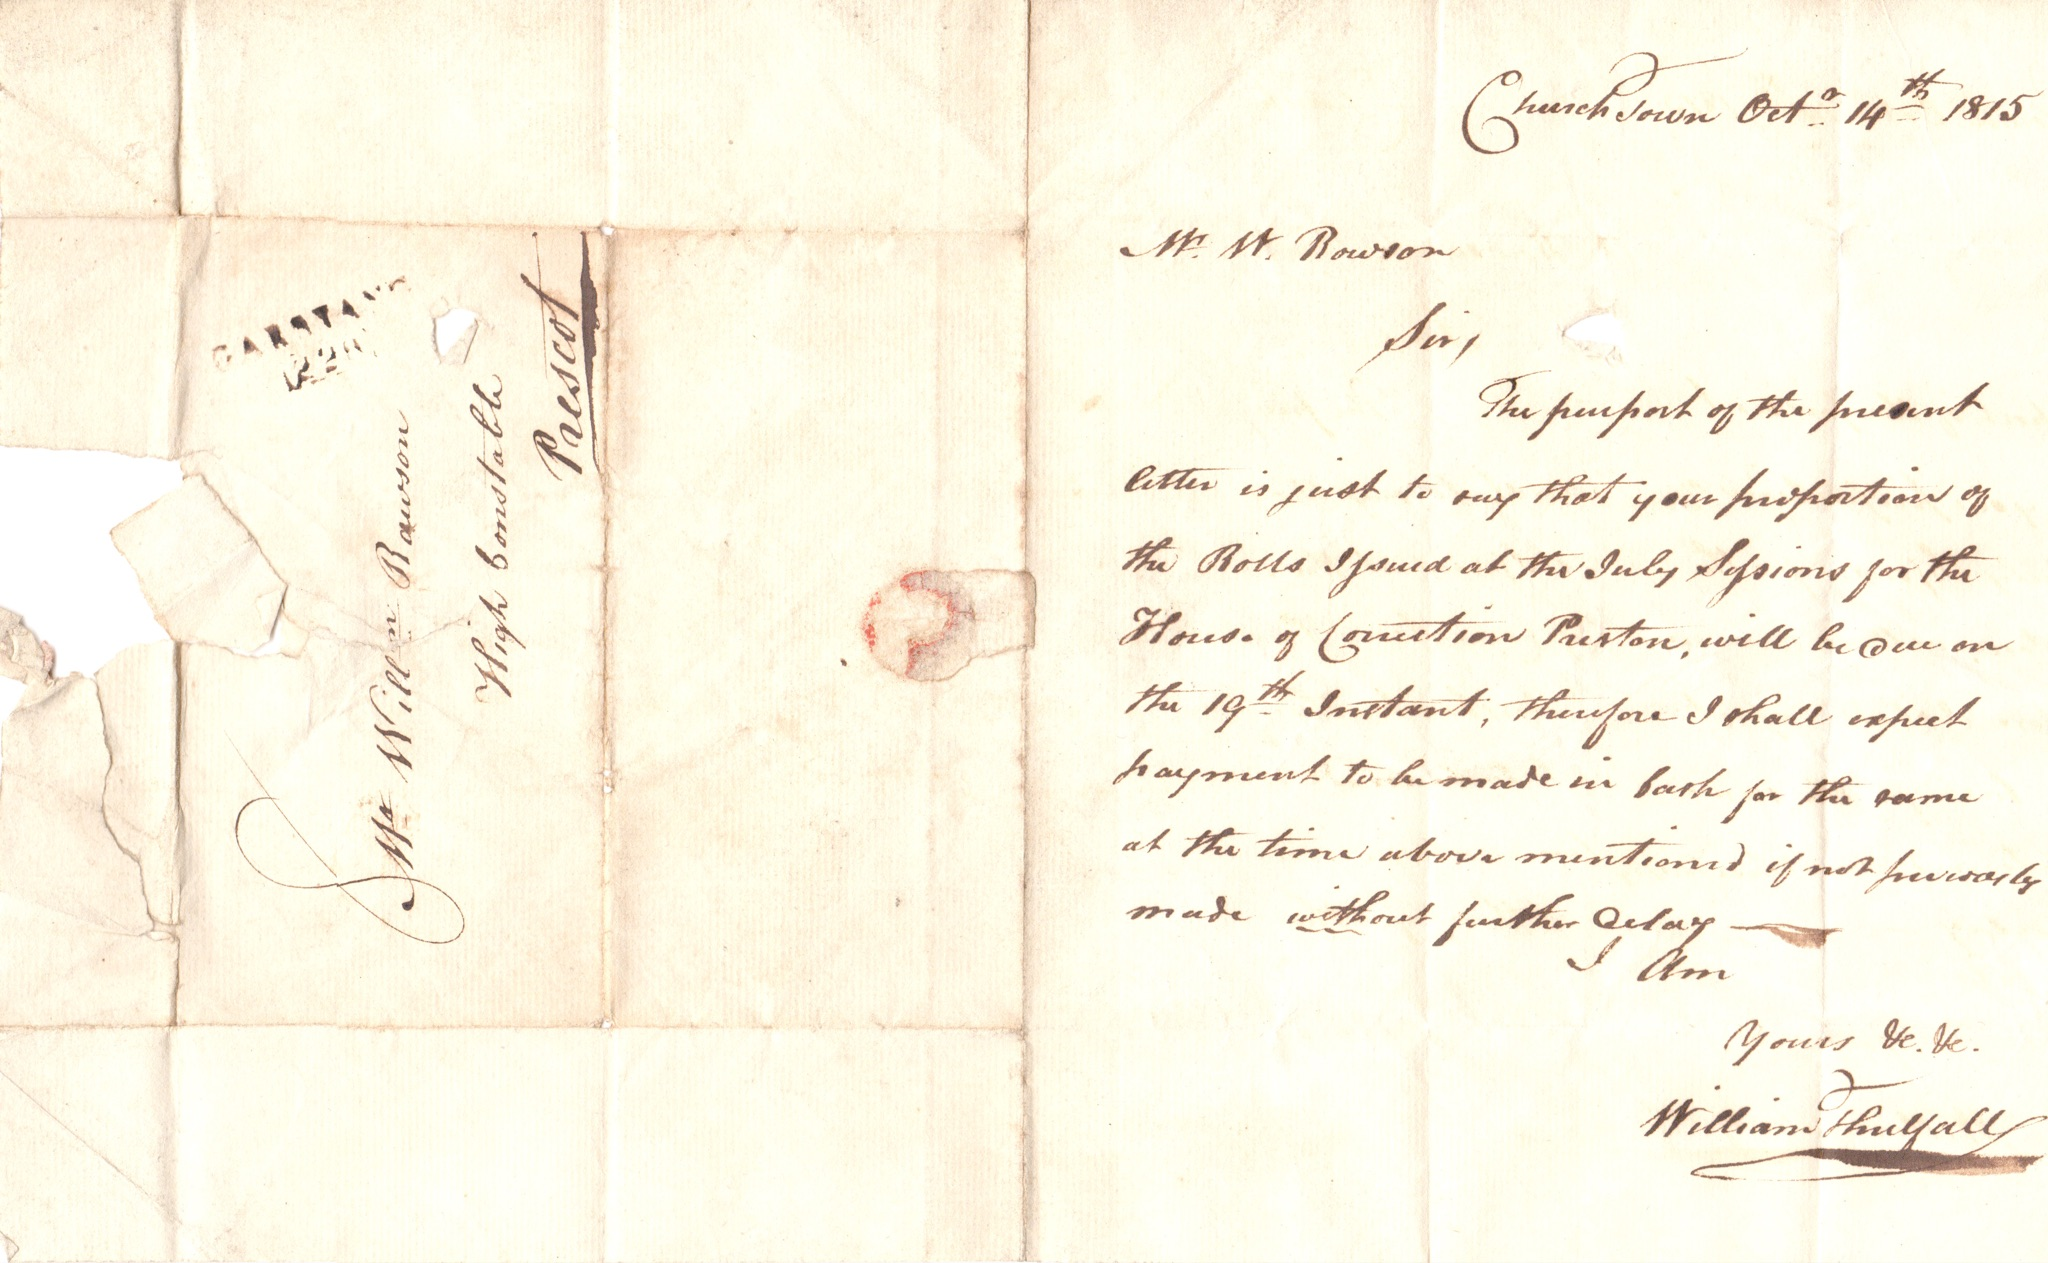 GARSTANG
Mr. Will-n Rawson
High Constable
Prescot
Church Town Octr. 14th 1815
Mr. W. Rowson
Sir,
The purport of the present
letter is just to say that your proportion of
the Rolls Issued at the July Sessions for the
House of Correction Preston, will be due on
the 19th Instant, therefore I shall expect
payment to be made in Cash for the same
at the time above mentioned if not previously
made without further delay
I Am
Yours &c. &c.
William Threlfall